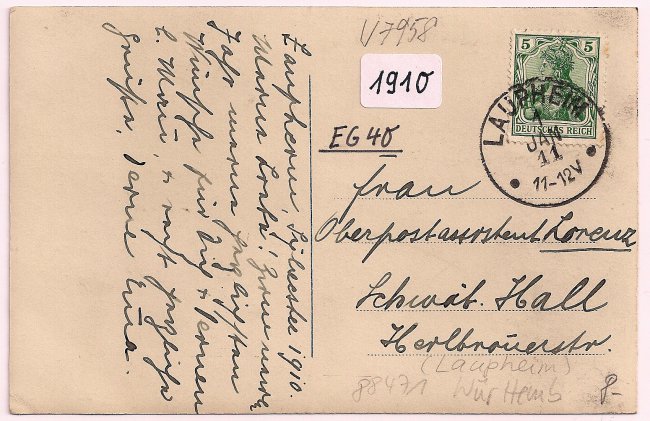 Laupheim, Sylvester 1910.
Meine Liebe! Zum neuen
Jahr meine herzlichsten
Wünsche für Dich & Deinen
l. Mann, & recht herzliche
Grüße, Deine Emma.
V7958
1910
EG40
5 5
DEUTSCHES REICH
LAUPHEIM
1
JAN
11
11-12V
Frau
Oberpostassistent Lorenz
Schwäb. Hall
(Laupheim)
88471
8-